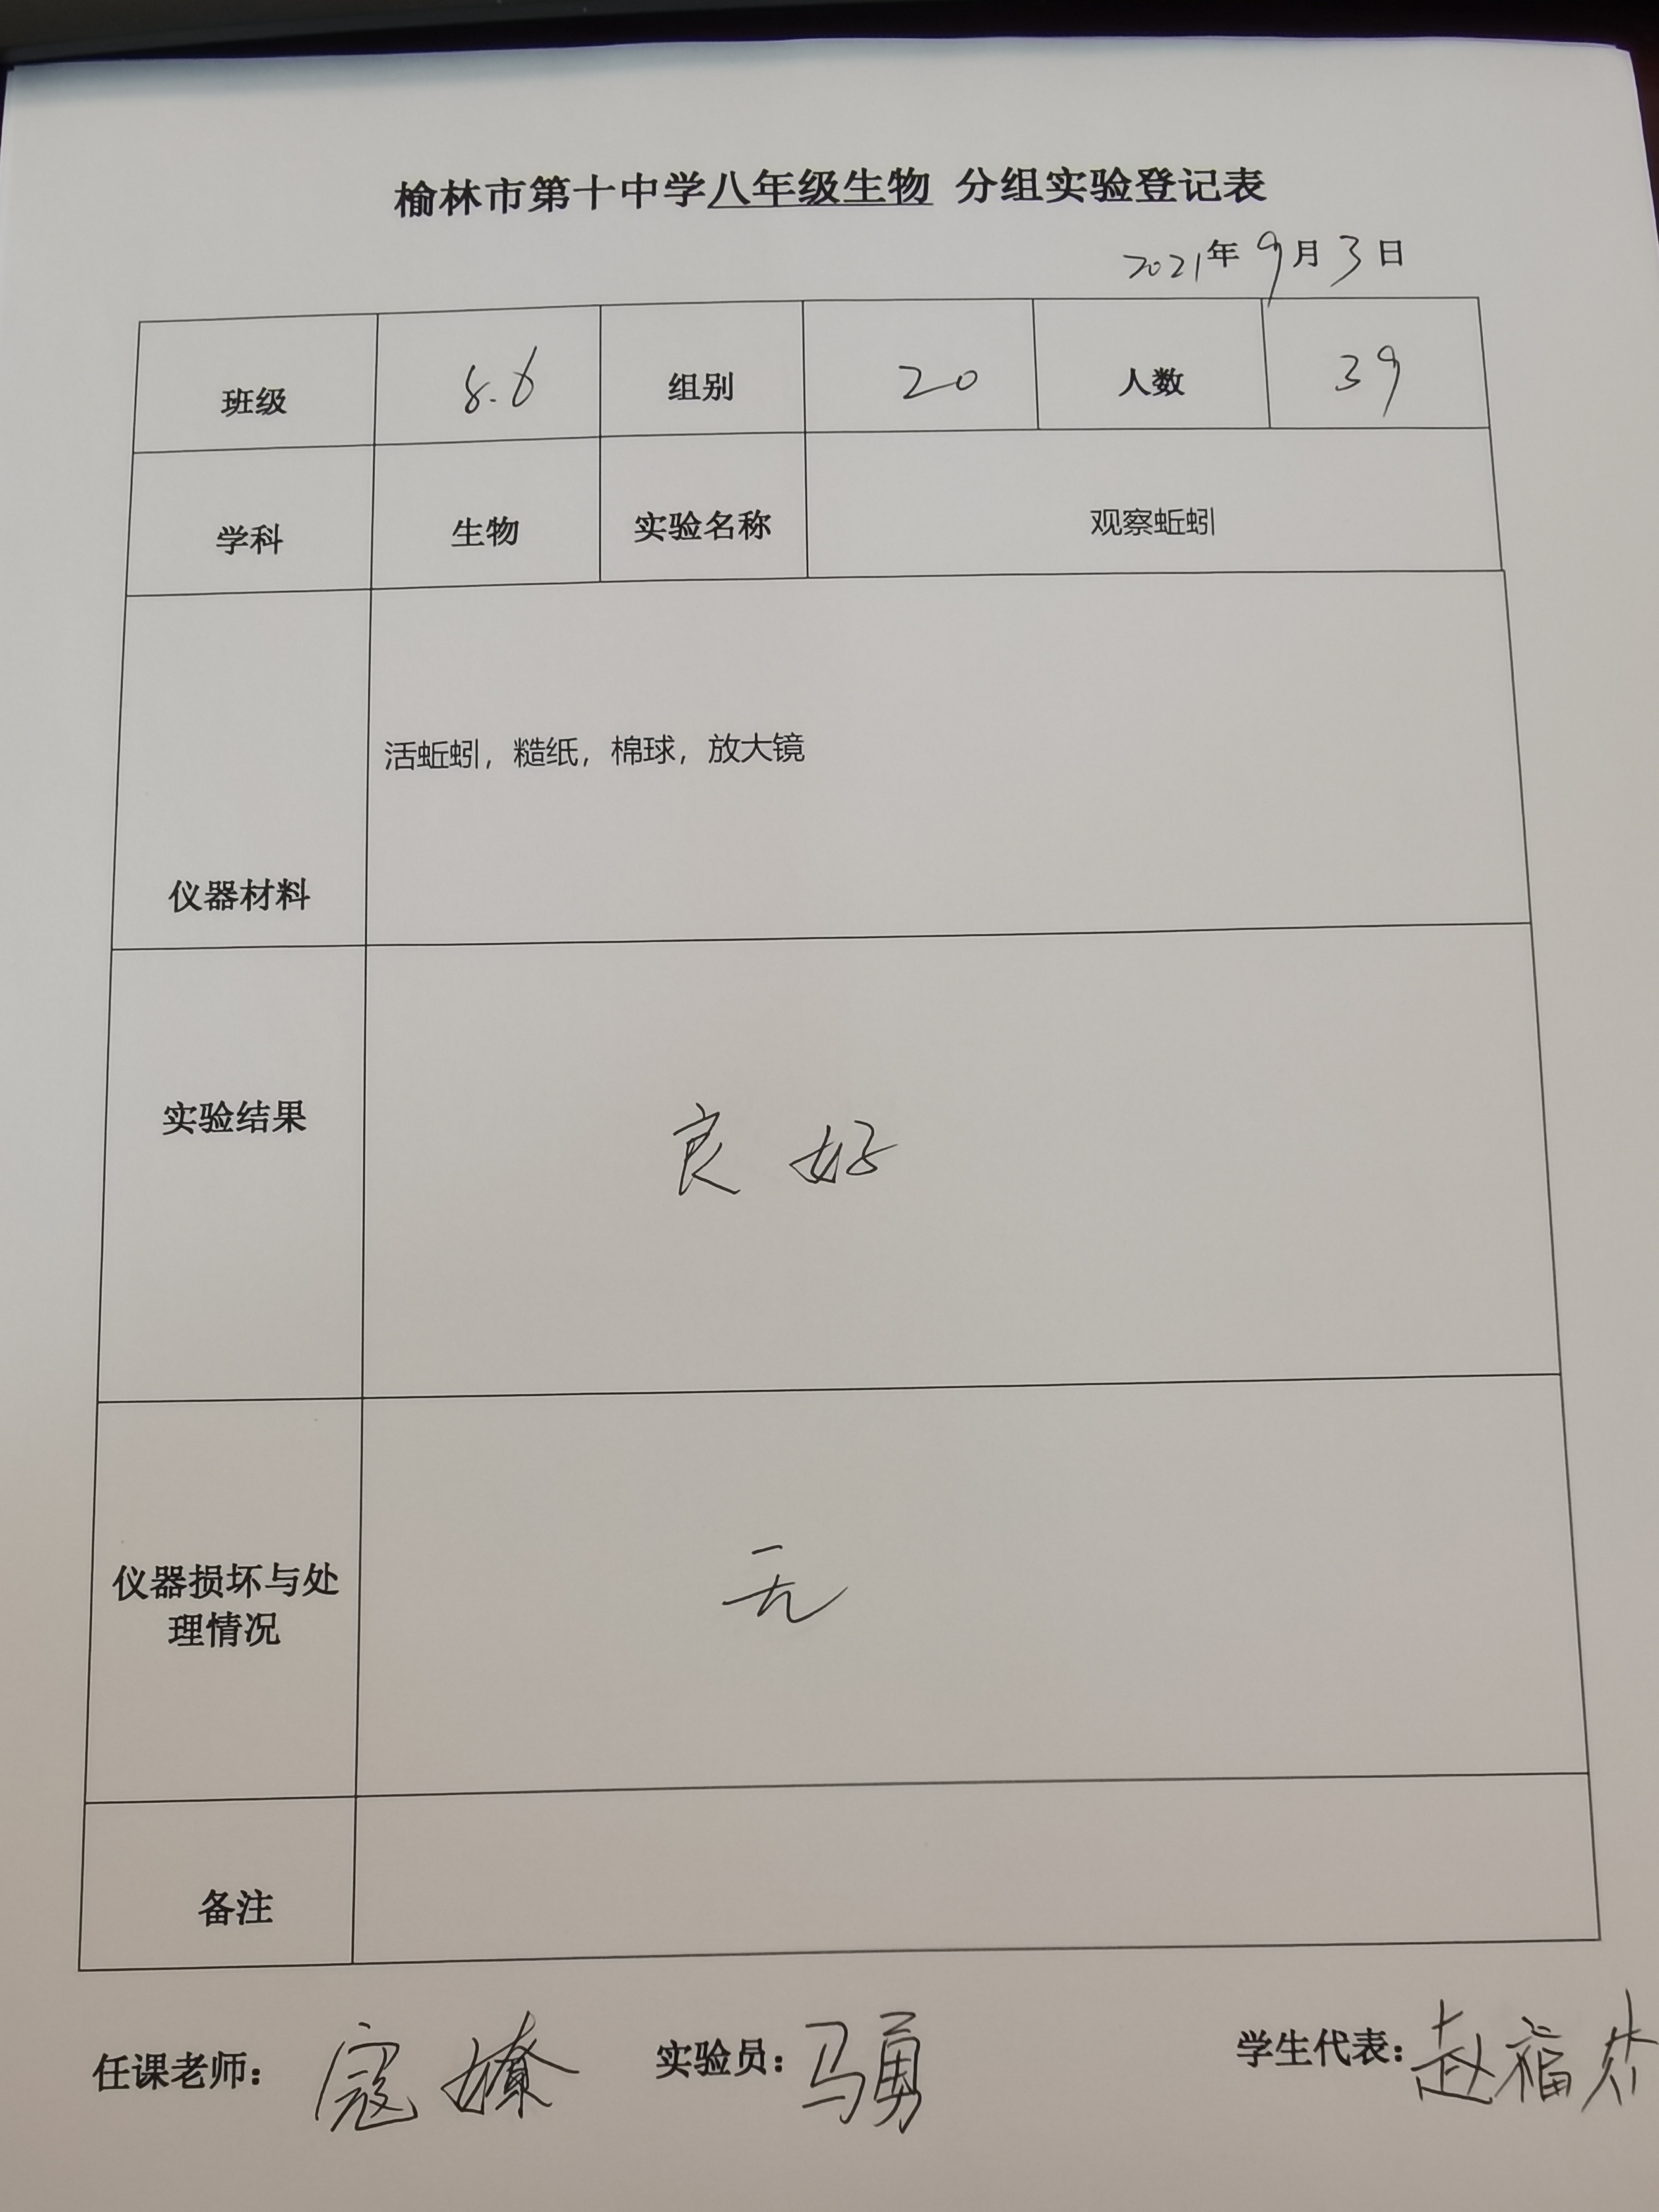 榆林市第十中学八年级生物 分组实验登记表
2021年9月3日
班级 8.6 组别 20 人数 39
学科 生物 实验名称 观察蚯蚓
仪器材料 活蚯蚓，糙纸，棉球，放大镜
实验结果 良好
仪器损坏与处
理情况 无
备注
任课老师：寇嫽 实验员：马勇 学生代表：赵福